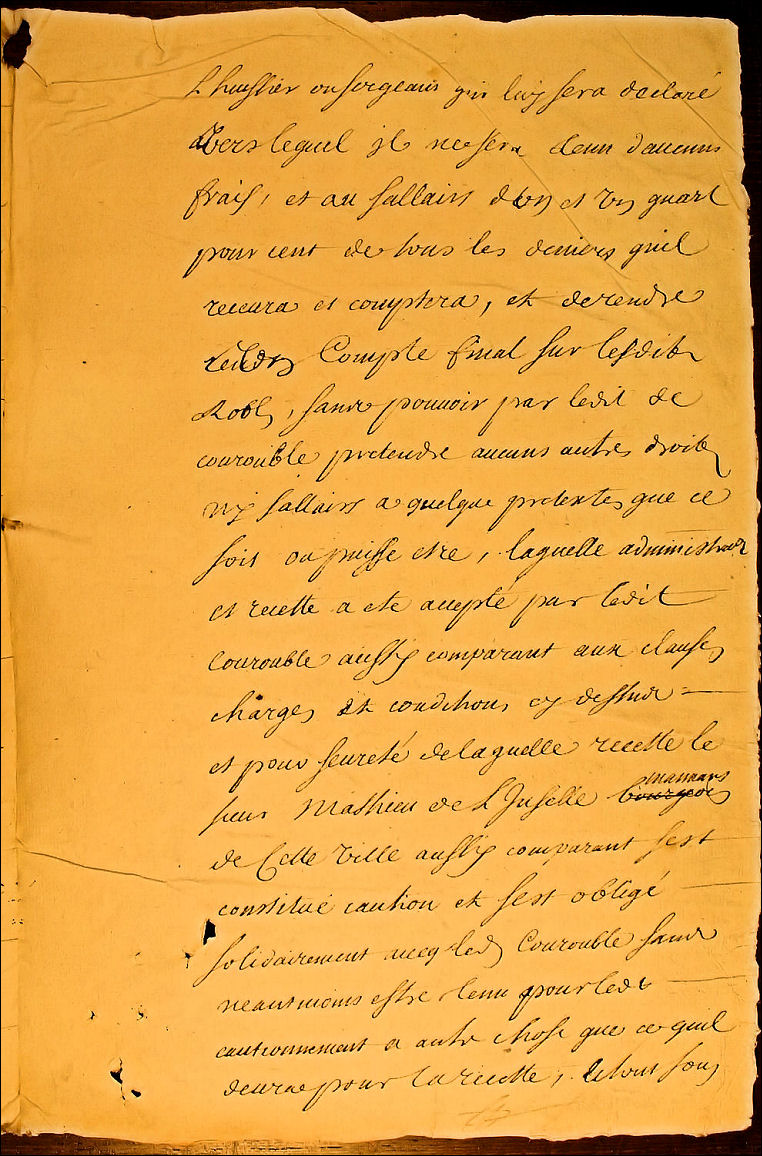 L huissier ou sergeant qui luy sera declaré
vers lequel il ne sera tenu d'aucuns
frais, et au sallaire d'un et un quart
pour cent de tous les deniers quil
recevra et comptera, et de rendre
Compte final sur lesdits
Rolles, sans pouvoir par ledit de
courouble pretendre aucuns autres droits
ny sallaires a quelque pretextes que ce
soit ou puisse etre, laquelle
et recette a eté accepté par ledit
Courouble aussy comparant aux clauses
charges et conditions cy dessus
et pour seureté de laquelle recette le
sieur Mathieu de L
de Cette ville aussy comparant sest
constitué caution et sest obligé
solidairement avecq led Courouble sans
neantmoins estre tenu pour led
cautionnement a autre chose que ce quil
devra pour la recette, le tout sous